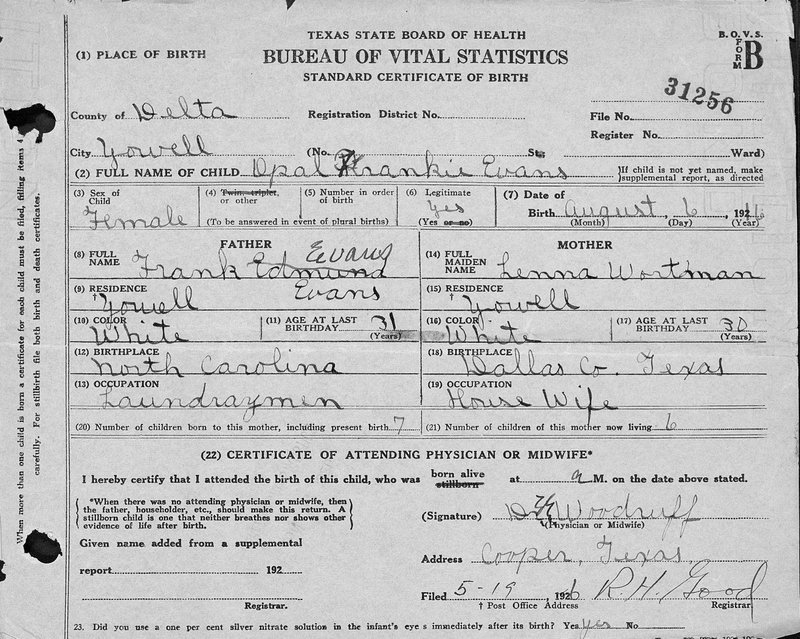 TEXAS STATE BOARD OF HEALTH
B. O. V. S.
FORM B
(1) PLACE OF BIRTH
BUREAU OF VITAL STATISTICS
STANDARD CERTIFICATE OF BIRTH
31256
County of Delta Registration District No. File No.
Register No.
City Yowell (No. St. Ward)
(2) FULL NAME OF CHILD Opal Frankie Evans
If child is not yet named, make
supplemental report, as directed
(3) Sex of Child Female
(4) Twin, triplet, or other
(5) Number in order of birth
(To be answered in event of plural births)
(6) Legitimate Yes (Yes or no)
(7) Date of Birth August, 6, 192
(Month) (Day) (Year)
FATHER
(8) FULL NAME Frank Edmund Evans
(9) RESIDENCE † Yowell Evans
(10) COLOR White (11) AGE AT LAST BIRTHDAY 31 (Years)
(12) BIRTHPLACE North Carolina
(13) OCCUPATION Laundraymen
MOTHER
(14) FULL MAIDEN NAME Lenna Wortman
(15) RESIDENCE † Yowell
(16) COLOR White (17) AGE AT LAST BIRTHDAY 30 (Years)
(18) BIRTHPLACE Dallas Co. Texas
(19) OCCUPATION House Wife
(20) Number of children born to this mother, including present birth 7
(21) Number of children of this mother now living 6
(22) CERTIFICATE OF ATTENDING PHYSICIAN OR MIDWIFE*
I hereby certify that I attended the birth of this child, who was born alive stillborn at a M. on the date above stated.
*When there was no attending physician or midwife, then
the father, householder, etc., should make this return. A
stillborn child is one that neither breathes nor shows other
evidence of life after birth.
(Signature) Woodruff
(Physician or Midwife)
Given name added from a supplemental
report 192
Registrar.
Address Cooper, Texas
Filed 5-19, 1926 R.H. Good
† Post Office Address Registrar.
23. Did you use a one per cent silver nitrate solution in the infant's eyes immediately after its birth? Yes yes No
When more than one child is born a certificate for each child must be filed, filling items 4
carefully. For stillbirth file both birth and death certificates.